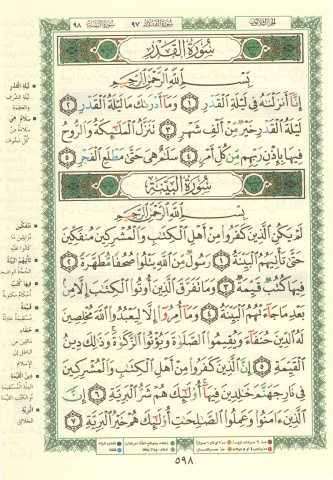 الجزء الثلاثون
سورة القدر ٩٧
سورة البينة ٩٨
سُورَةُ الْقَدْرِ
بِسْمِ اللَّهِ الرَّحْمَٰنِ الرَّحِيمِ
إِنَّا أَنزَلْنَاهُ فِي لَيْلَةِ الْقَدْرِ ١ وَمَا أَدْرَاكَ مَا لَيْلَةُ الْقَدْرِ ٢
لَيْلَةُ الْقَدْرِ خَيْرٌ مِّنْ أَلْفِ شَهْرٍ ٣ تَنَزَّلُ الْمَلَائِكَةُ وَالرُّوحُ
فِيهَا بِإِذْنِ رَبِّهِم مِّن كُلِّ أَمْرٍ ٤ سَلَامٌ هِيَ حَتَّىٰ مَطْلَعِ الْفَجْرِ ٥
سُورَةُ الْبَيِّنَةِ
بِسْمِ اللَّهِ الرَّحْمَٰنِ الرَّحِيمِ
لَمْ يَكُنِ الَّذِينَ كَفَرُوا مِنْ أَهْلِ الْكِتَابِ وَالْمُشْرِكِينَ مُنفَكِّينَ
حَتَّىٰ تَأْتِيَهُمُ الْبَيِّنَةُ ١ رَسُولٌ مِّنَ اللَّهِ يَتْلُو صُحُفًا مُّطَهَّرَةً ٢
فِيهَا كُتُبٌ قَيِّمَةٌ ٣ وَمَا تَفَرَّقَ الَّذِينَ أُوتُوا الْكِتَابَ إِلَّا مِن
بَعْدِ مَا جَاءَتْهُمُ الْبَيِّنَةُ ٤ وَمَا أُمِرُوا إِلَّا لِيَعْبُدُوا اللَّهَ مُخْلِصِينَ
لَهُ الدِّينَ حُنَفَاءَ وَيُقِيمُوا الصَّلَاةَ وَيُؤْتُوا الزَّكَاةَ وَذَٰلِكَ دِينُ
الْقَيِّمَةِ ٥ إِنَّ الَّذِينَ كَفَرُوا مِنْ أَهْلِ الْكِتَابِ وَالْمُشْرِكِينَ
فِي نَارِ جَهَنَّمَ خَالِدِينَ فِيهَا أُولَٰئِكَ هُمْ شَرُّ الْبَرِيَّةِ ٦ إِنَّ
الَّذِينَ آمَنُوا وَعَمِلُوا الصَّالِحَاتِ أُولَٰئِكَ هُمْ خَيْرُ الْبَرِيَّةِ ٧
ليلة القدر
ليلة الشرف
والعظمة
سلام هي
سلامة من
كل مخوف
منفكين
تأتيهم البينة
فيها كتب
قيمة
حنفاء
مائلين عن
الباطل إلى
الإسلام
دين القيمة
البرية
الخلائق
٥٩٨